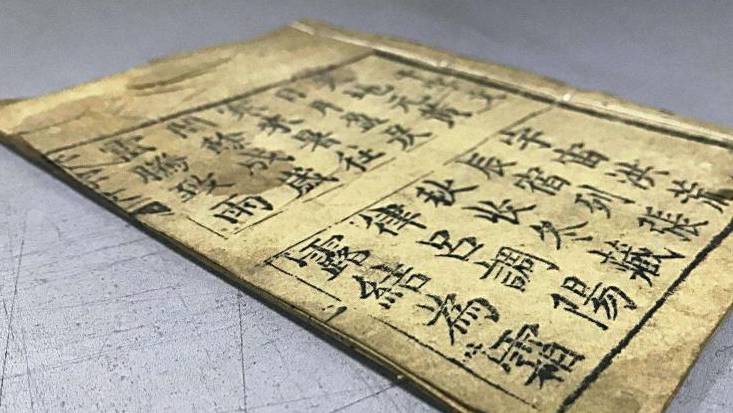 天地元黃
宇宙洪荒
日月盈昃
辰宿列張
寒來暑往
秋收冬藏
閏餘成歲
律呂調陽
雲騰致雨
露結為霜